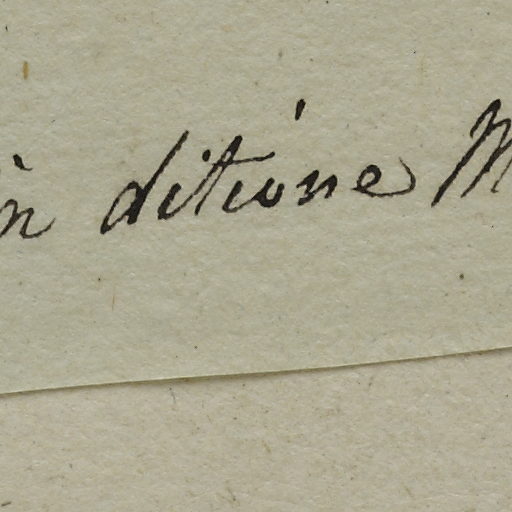 in ditione M